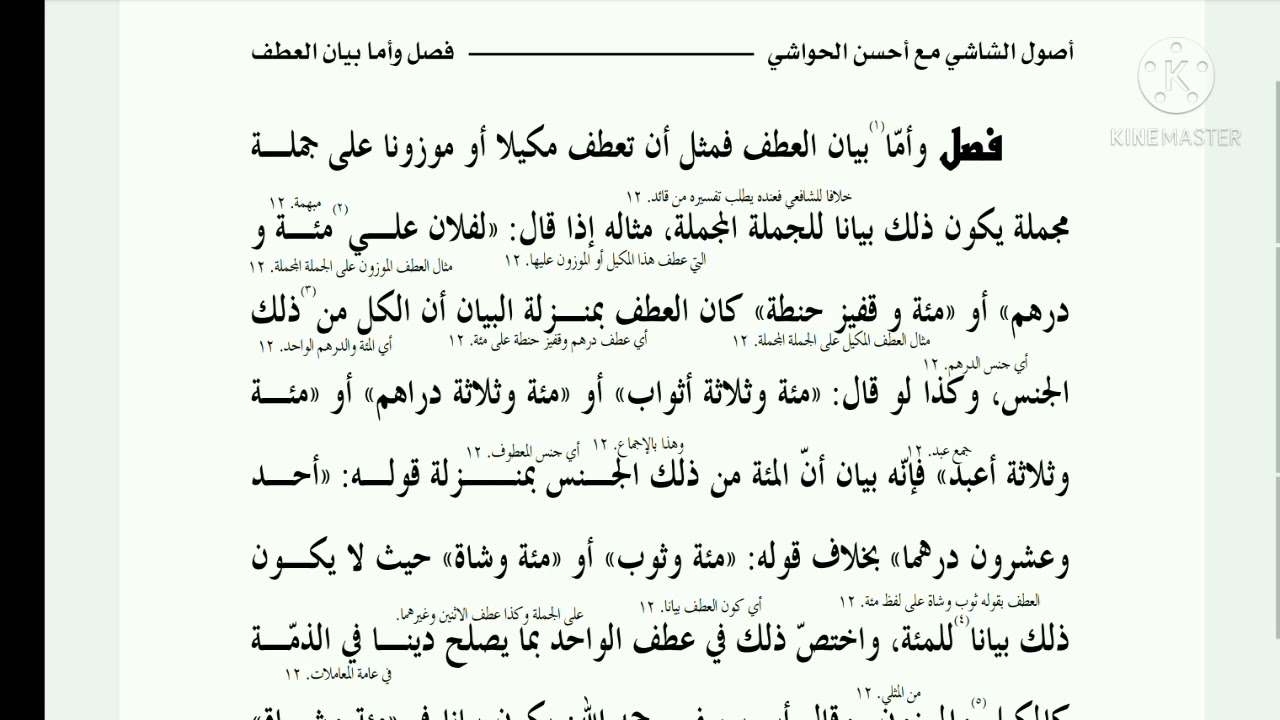 أصول الشاشي مع أحسن الحواشي فصل وأما بيان العطف
KINEMASTER
فصل وأمّا(١) بيان العطف فمثل أن تعطف مكيلا أو موزونا على جملة
خلافا للشافعي فعنده يطلب تفسيره من قائد. ١٢ مبهمة. ١٢
مجملة يكون ذلك بيانا للجملة المجملة، مثاله إذا قال: «لفلان علي(٢) مئة و
التي عطف هذا المكيل أو الموزون عليها. ١٢ مثال العطف الموزون على الجملة المجملة. ١٢
درهم» أو «مئة و قفيز حنطة» كان العطف بمنزلة البيان أن الكل من(٣) ذلك
مثال العطف المكيل على الجملة المجملة. ١٢ أي عطف درهم وقفيز حنطة على مئة. ١٢ أي المئة والدرهم الواحد. ١٢
أي جنس الدرهم. ١٢
الجنس، وكذا لو قال: «مئة وثلاثة أثواب» أو «مئة وثلاثة دراهم» أو «مئة
جمع عبد. ١٢ وهذا بالإجماع. ١٢ أي جنس المعطوف. ١٢
وثلاثة أعبد» فإنّه بيان أنّ المئة من ذلك الجنس بمنزلة قوله: «أحد
وعشرون درهما» بخلاف قوله: «مئة وثوب» أو «مئة وشاة» حيث لا يكون
العطف بقوله ثوب وشاة على لفظ مئة. ١٢ أي كون العطف بيانا. ١٢ على الجملة وكذا عطف الاثنين وغيرهما.
ذلك بيانا(٤) للمئة، واختصّ ذلك في عطف الواحد بما يصلح دينا في الذمّة
من المثلي. ١٢ في عامة المعاملات. ١٢